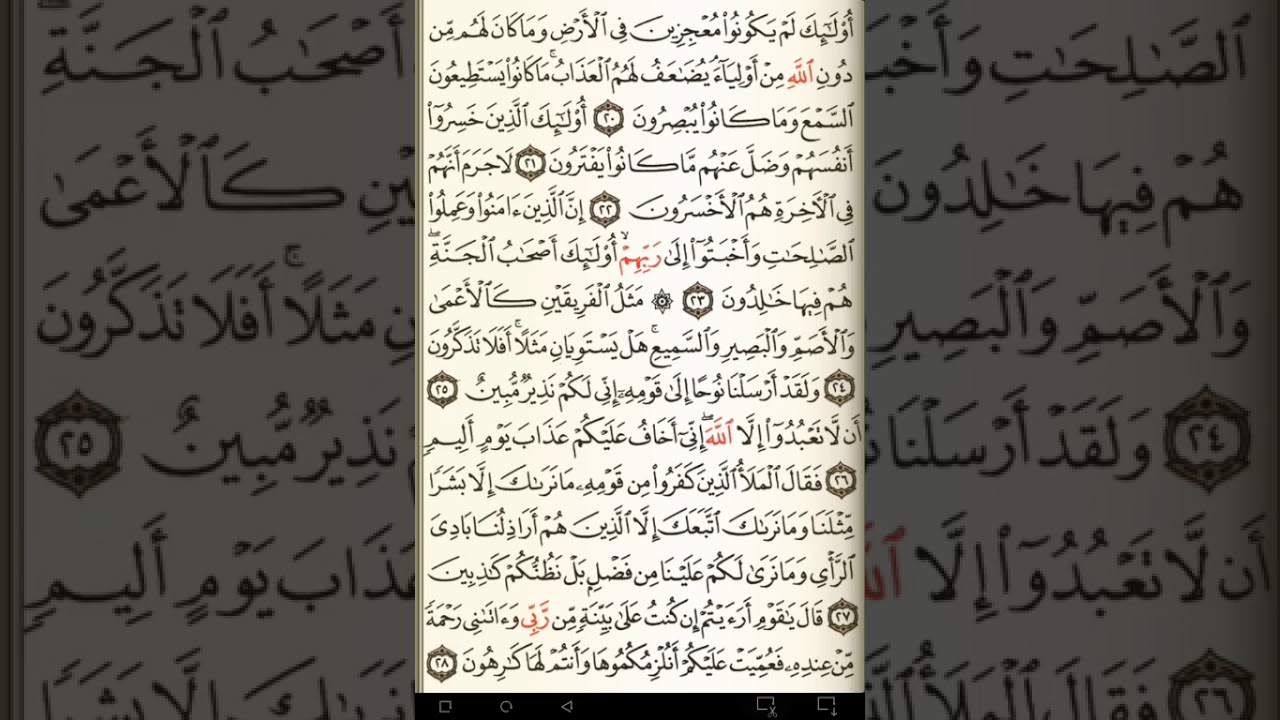 أُوْلَٰٓئِكَ لَمْ يَكُونُواْ مُعْجِزِينَ فِي ٱلْأَرْضِ وَمَا كَانَ لَهُم مِّن
دُونِ ٱللَّهِ مِنْ أَوْلِيَآءَۘ يُضَٰعَفُ لَهُمُ ٱلْعَذَابُۚ مَا كَانُواْ يَسْتَطِيعُونَ
ٱلسَّمْعَ وَمَا كَانُواْ يُبْصِرُونَ ٢٠ أُوْلَٰٓئِكَ ٱلَّذِينَ خَسِرُوٓاْ
أَنفُسَهُمْ وَضَلَّ عَنْهُم مَّا كَانُواْ يَفْتَرُونَ ٢١ لَا جَرَمَ أَنَّهُمْ
فِي ٱلْأٓخِرَةِ هُمُ ٱلْأَخْسَرُونَ ٢٢ إِنَّ ٱلَّذِينَ ءَامَنُواْ وَعَمِلُواْ
ٱلصَّٰلِحَٰتِ وَأَخْبَتُوٓاْ إِلَىٰ رَبِّهِمْۙ أُوْلَٰٓئِكَ أَصْحَٰبُ ٱلْجَنَّةِۖ
هُمْ فِيهَا خَٰلِدُونَ ٢٣ ۞ مَثَلُ ٱلْفَرِيقَيْنِ كَٱلْأَعْمَىٰ
وَٱلْأَصَمِّ وَٱلْبَصِيرِ وَٱلسَّمِيعِۚ هَلْ يَسْتَوِيَانِ مَثَلًاۚ أَفَلَا تَذَكَّرُونَ
٢٤ وَلَقَدْ أَرْسَلْنَا نُوحًا إِلَىٰ قَوْمِهِۦٓ إِنِّي لَكُمْ نَذِيرٌ مُّبِينٌ ٢٥
أَن لَّا تَعْبُدُوٓاْ إِلَّا ٱللَّهَۖ إِنِّيٓ أَخَافُ عَلَيْكُمْ عَذَابَ يَوْمٍ أَلِيمٍ
٢٦ فَقَالَ ٱلْمَلَأُ ٱلَّذِينَ كَفَرُواْ مِن قَوْمِهِۦ مَا نَرَىٰكَ إِلَّا بَشَرًا
مِّثْلَنَا وَمَا نَرَىٰكَ ٱتَّبَعَكَ إِلَّا ٱلَّذِينَ هُمْ أَرَاذِلُنَا بَادِيَ
ٱلرَّأْيِ وَمَا نَرَىٰ لَكُمْ عَلَيْنَا مِن فَضْلٍ بَلْ نَظُنُّكُمْ كَٰذِبِينَ
٢٧ قَالَ يَٰقَوْمِ أَرَءَيْتُمْ إِن كُنتُ عَلَىٰ بَيِّنَةٍ مِّن رَّبِّي وَءَاتَىٰنِي رَحْمَةً
مِّنْ عِندِهِۦ فَعُمِّيَتْ عَلَيْكُمْ أَنُلْزِمُكُمُوهَا وَأَنتُمْ لَهَا كَٰرِهُونَ ٢٨